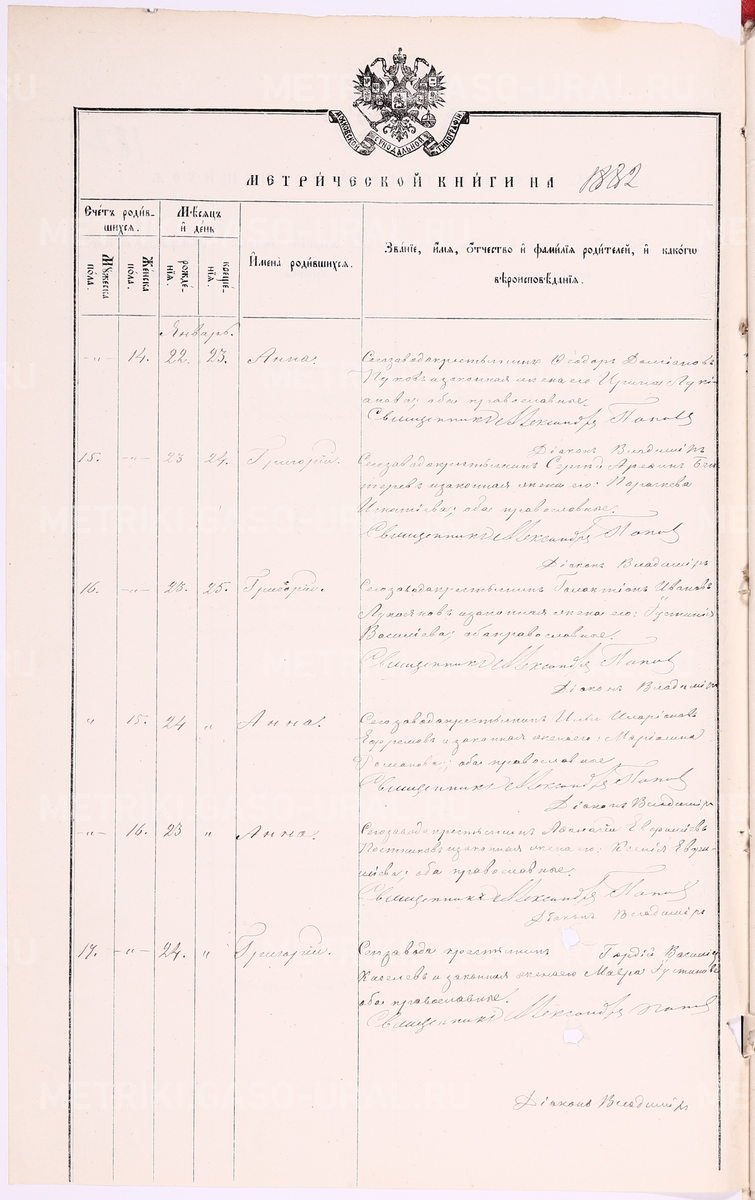 МОСКОВСКОЙ СѴНОДАЛЬНОЙ ТИПОГРАФІИ
МЕТРИ́ЧЕСКОЙ КНИ́ГИ НА 1882
Сче́тъ роди́вшихся.
Мѣ́сяцъ и҆ де́нь
Мꙋ́жеска пола.
Же́нска пола.
рожде́нїѧ.
креще́нїѧ.
И҆мена̀ роди́вшихся.
Зва́нїе, и҆́мѧ, о҆́тчество и҆ фами́лїѧ роди́телей, и҆ како́гѡ
вѣроисповѣ́данїѧ.
Январь.
-„- 14. 22. 23. Анна.
Сегозавода крестьянинъ Ѳеодоръ
и законная жена его Ирина Луки-
анова; оба православные.
Священникъ Александръ Поповъ
Діаконъ Владиміръ
15. -„- 23 24. Григорій.
Сегозавода крестьянинъ Сергій
и законная жена его: Параскева
Игнатіева; оба православные.
Священникъ Александръ Поповъ
Діаконъ Владиміръ
16. -„- 23. 25. Григорій.
Сегозавода крестьянинъ Галактіонъ Ивановъ
Лукояновъ и законная жена его: Іустинія
Василіева; оба православные.
Священникъ Александръ Поповъ
Діаконъ Владиміръ
„ 15. 24 „ Анна.
Сегозавода крестьянинъ Илья Иларіоновъ
Ефремовъ и законная жена его:
оба православные
Священникъ Александръ Поповъ
Діаконъ Владиміръ
-„- 16. 23 „ Анна.
Сегозавода крестьянинъ
Постниковъ и законная жена его: Ксенія
оба православные.
Священникъ Александръ Поповъ
Діаконъ Владиміръ
17. -„- 24. „ Григорій.
Сегозавода крестьянинъ Гордій
Киселевъ и законная жена его Мавра
оба православные.
Священникъ Александръ Поповъ
Діаконъ Владиміръ